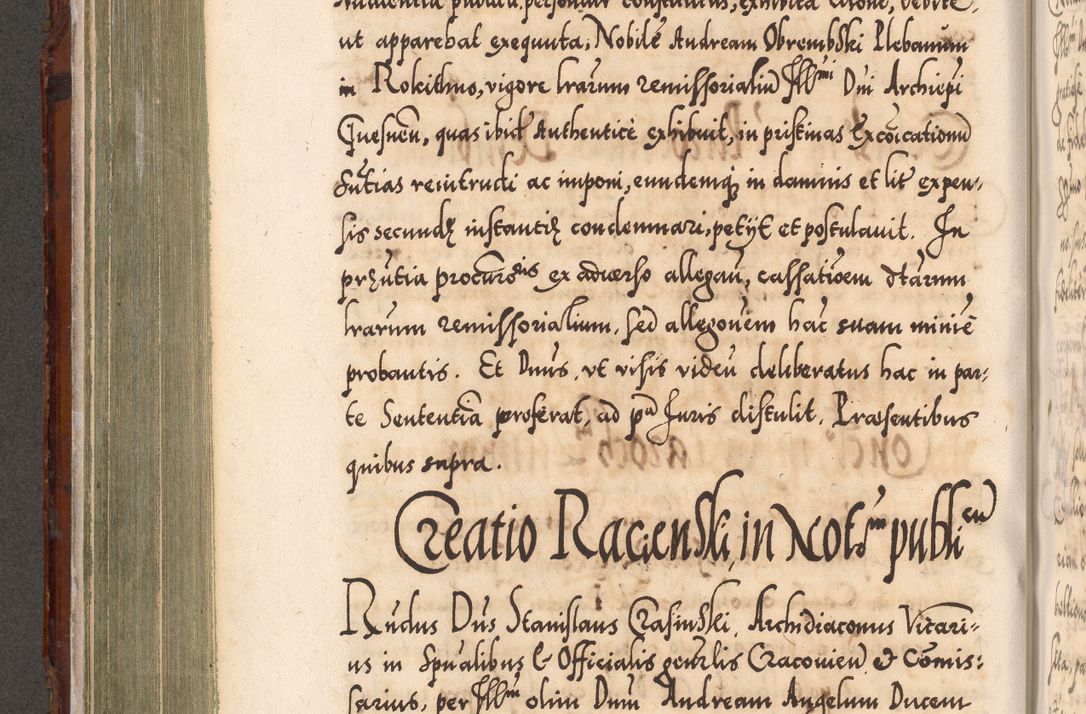 Audientia publica, personar constitutus, exhibita Citone, debite
ut apparebat exequuta, Nobile Andream Obrembski Plebanum
in Rokithno, vigore lrarum remissorialiu Illmi Dni Archiepi
Gnesnen, quas ibid Authentice exhibuit, in pristinas Excoicationu
Sntias reintrudi ac imponi, eundemq in damnis et lit expen-
sis secundz instantiz condemnari, petyt et postulavit. In
przntia procuris ex adverso allegan, cassatioem dtarum
lrarum remissorialium, sed allegonem hac suam minie
probantis. Et Dnus, ut visis viden deliberatus hac in par-
te Sententia proferat, ad pu Juris distulit. Præsentibus
quibus supra.
Creatio Racienski, in Notm publicu
Rndus Dus Stanislaus Crasinski, Archidiaconus Vicari-
us in Spualibus & Officialis genrlis Cracovien et Comis:
sarius, per Illm olim Dnm Andream Angelum Ducem